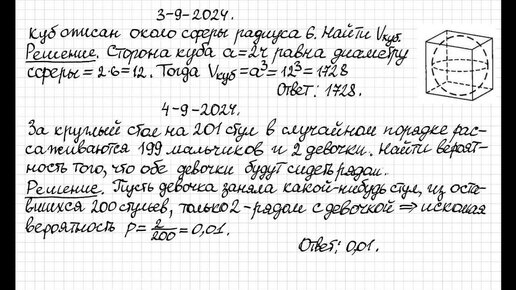 3-9-2024.
Куб описан около сферы радиуса 6. Найти Vкуб.
Решение. Сторона куба a=2r равна диаметру
сферы = 2·6=12. Тогда Vкуб=a³=12³=1728
Ответ: 1728.
4-9-2024.
За круглый стол на 201 стул в случайном порядке рас-
саживаются 199 мальчиков и 2 девочки. Найти вероят-
ность того, что обе девочки будут сидеть рядом.
Решение. Пусть девочка заняла какой-нибудь стул, из оста-
вшихся 200 стульев, только 2 - рядом с девочкой ⇒ искомая
вероятность p = 2/200 = 0,01.
Ответ: 0,01.